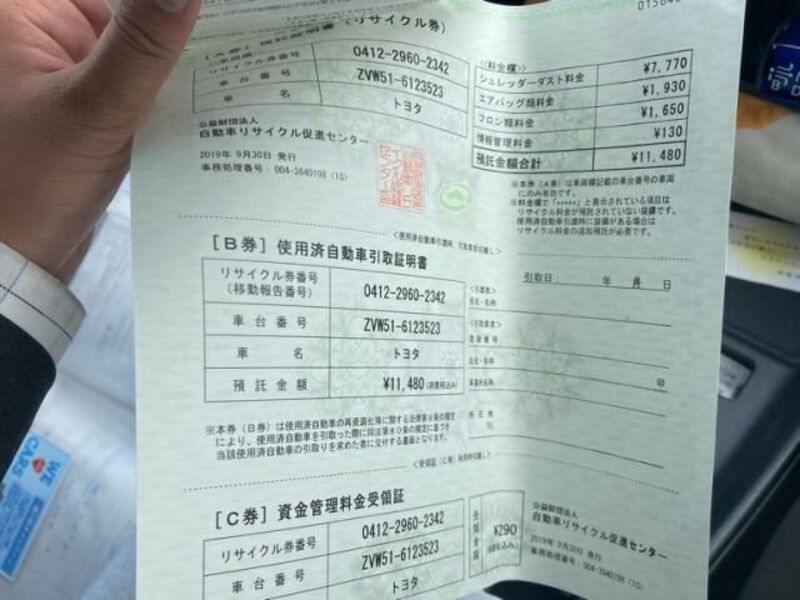 015840
[A券] 預託証明書 (リサイクル券)
リサイクル券番号 0412-2960-2342
車台番号 ZVW51-6123523
車名 トヨタ
公益財団法人
自動車リサイクル促進センター
2019年 9月30日 発行
事務処理番号:004-3640198 (1S)
《料金欄》
シュレッダーダスト料金 ¥7,770
エアバッグ類料金 ¥1,930
フロン類料金 ¥1,650
情報管理料金 ¥130
預託金額合計 ¥11,480
※本券(A券)は車両欄記載の車台番号の車両
にのみ有効です。
※料金欄で「*****」と表示されている項目は
リサイクル料金が預託されていない装備です。
使用済自動車引渡時に装備がある場合は
リサイクル料金の追加預託が必要です。
<使用済自動車引渡時、引取業者切離し>
[B券] 使用済自動車引取証明書
リサイクル券番号
(移動報告番号) 0412-2960-2342
車台番号 ZVW51-6123523
車名 トヨタ
預託金額 ¥11,480(消費税込み)
引取日: 年 月 日
氏名・名称
<引取業者>
登録番号
氏名・名称
事業所名称 印
所在地
TEL
※本券(B券)は使用済自動車の再資源化等に関する法律第9条の規定
により、使用済自動車を引取った際に同法第80条の規定に基づき
当該使用済自動車の引取りを求めた者に交付する書面となります。
<受領証(C券)利用時切離し>
[C券] 資金管理料金受領証
リサイクル券番号 0412-2960-2342
車台番号 ZVW51-6123523
トヨタ
受領金額 ¥290
(消費税込み)
公益財団法人
自動車リサイクル促進センター
2019年 9月30日 発行
事務処理番号:004-3640198 (1S)
WE
CARS